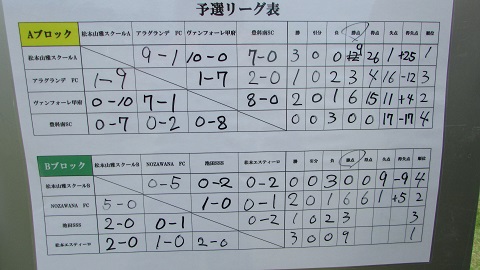 予選リーグ表
Aブロック 松本山雅スクールA アラグランデ FC ヴァンフォーレ甲府 豊科南SC 勝 引分 負 勝点 得点 失点 得失点 順位
松本山雅スクールA 9-1 10-0 7-0 3 0 0 9 26 1 +25 1
アラグランデ FC 1-9 1-7 2-0 1 0 2 3 4 16 -12 3
ヴァンフォーレ甲府 0-10 7-1 8-0 2 0 1 6 15 11 +4 2
豊科南SC 0-7 0-2 0-8 0 0 3 0 0 17 -17 4
Bブロック 松本山雅スクールB NOZAWANA FC 池田SSS 松本エスティーロ 勝 引分 負 勝点 得点 失点 得失点 順位
松本山雅スクールB 0-5 0-2 0-2 0 0 3 0 0 9 -9 4
NOZAWANA FC 5-0 1-0 0-1 2 0 1 6 6 1 +5 2
池田SSS 2-0 0-1 0-2 1 0 2 3 3
松本エスティーロ 2-0 1-0 2-0 3 0 0 9 1